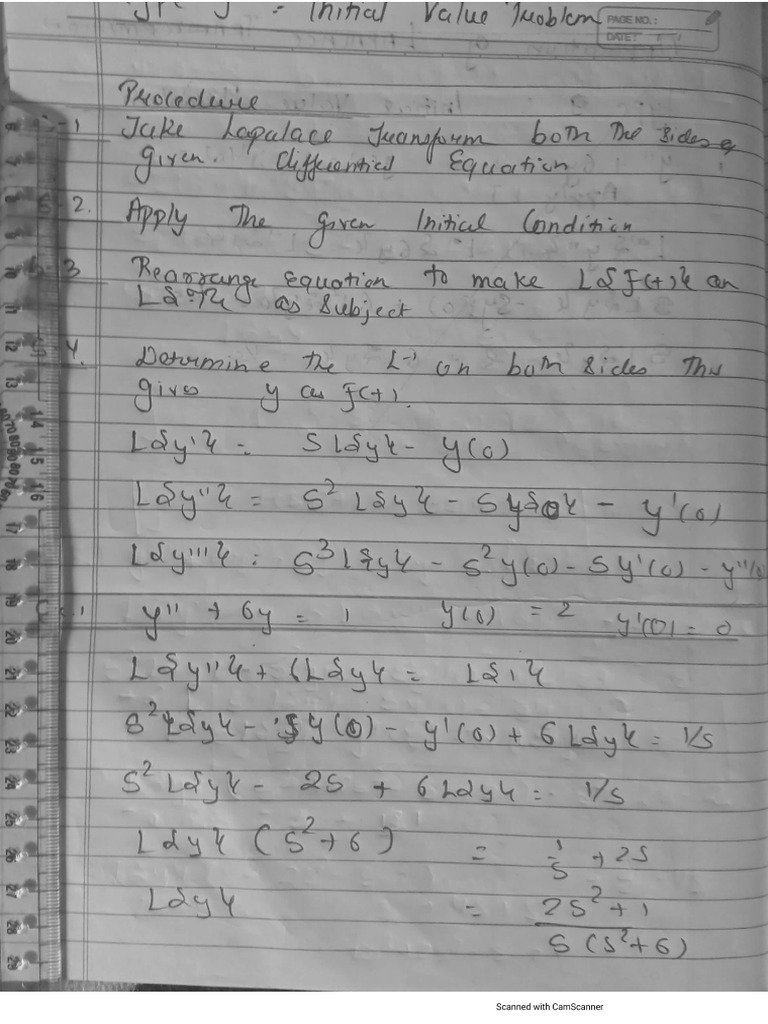 = Initial Value Problem
PAGE NO.:
DATE:
Procedure
-1 Take Lapalace Transform both the sides of
given. differential Equation
-2. Apply The given Initial Condition
-3 Rearrange equation to make L{f(t)} an
as subject
4. Determine the L⁻¹ on both sides This
gives y as f(t).
L{y'} = SL{y} - y(0)
L{y''} = S² L{y} - S y{0} - y'(0)
L{y'''} = S³ L{y} - S²y(0) - Sy'(0) - y''(0)
1 y'' + 6y = 1 y(0) = 2 y'(0) = 0
L{y''} + 6L{y} = L{1}
S²L{y} - Sy(0) - y'(0) + 6L{y} = 1/s
S² L{y} - 2S + 6L{y} = 1/s
L{y} (S²+6) = 1/s + 2S
L{y} = 2S²+1 / S(S²+6)
Scanned with CamScanner